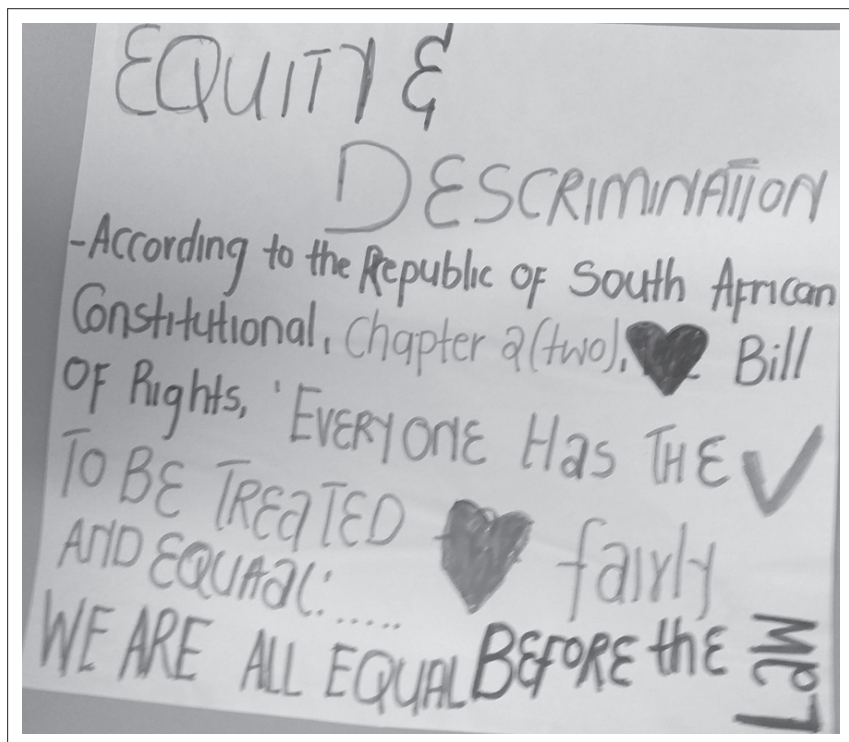 EQUITY &
DESCRIMINATION
-According to the Republic OF South African
Constitutional, Chapter 2(two), Bill
OF Rights, 'EVERYONE Has THE
TO BE TREATED fairly
AND EQUAL:.....
WE ARE ALL EQUAL BEFORE the LAW